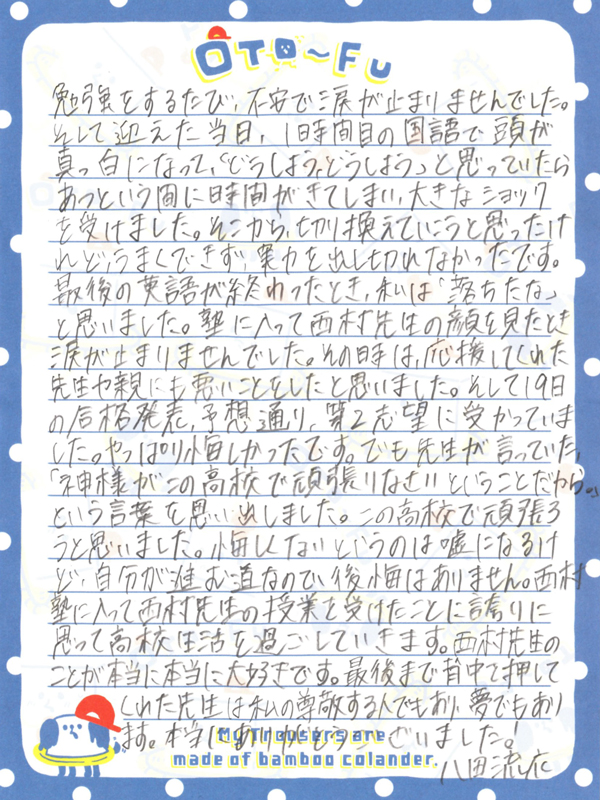 OTO~FU
勉強をするたび、不安で涙が止まりませんでした。
そして迎えた当日、1時間目の国語で頭が
真っ白になって、「どうしよう、どうしよう」と思っていたら
あっという間に時間がきてしまい、大きなショック
を受けました。そこから、切り換えていこうと思ったけ
れどうまくできず、実力を出し切れなかったです。
最後の英語が終わったとき、私は「落ちたな」
と思いました。塾に入って西村先生の顔を見たとき
涙が止まりませんでした。その時は、応援してくれた
先生や親にも悪いことをしたと思いました。そして19日
の合格発表、予想通り、第2志望に受かっていま
した。やっぱり悔しかったです。でも先生が言っていた、
「神様がこの高校で頑張りなさいということだから。」
という言葉を思い出しました。この高校で頑張ろ
うと思いました。悔しくないというのは嘘になるけ
ど、自分が進む道なので、後悔はありません。西村
塾に入って西村先生の授業を受けたことに誇りに
思って高校生活を過ごしていきます。西村先生の
ことが本当に本当に大好きです。最後まで背中を押して
くれた先生は私の尊敬する人でもあり、夢でもあり
ます。本当にありがとうございました！
My trousers are
made of bamboo colander.
八田流